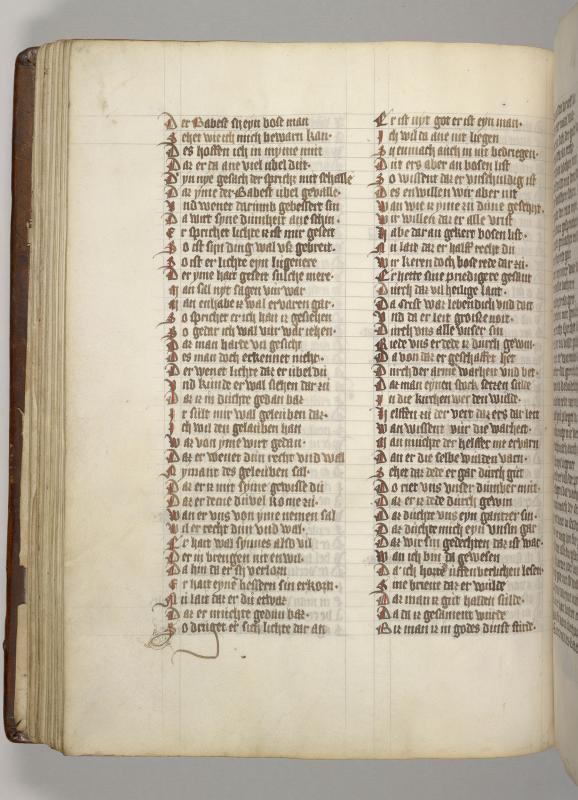 Der Babest si eyn bose man
Sehet wie ich mich bewarn kan·
Des hoffen ich in myme mut
Daz er da ane viel ubel dut·
Dyn nye gesach der sprechz mit schalle
Daz yme der Babest ubel gevalle·
Und wener darumb gebessert sin
Da wirt syne dumheit ane schin·
Er sprichet lichte iz ist mir geseit
So ist syn ding wal uz gebreit·
So ist er lichte eyn lugenere
Der yme hait geseit sulche mere·
Man sal nyt sagen vur war
Man enhabe iz wal ervaren gar·
So sprichet er ich han iz gesiehen
So gedar ich wal vur war iehen·
Daz man harte vil gesicht
Des man doch erkennet nicht·
Der wener lichte daz er ubel du
Und kunde er wal siehen dar zu
Daz iz in duchte gedan baz
Ir sult mir wal geleuben daz·
Ich wil den geleuben han
Waz von yme wirt gedan·
Daz er wener dun recht und wal
Nymant des geleuben sal·
Daz er iz mit syme gewisse du
Daz er deme duvel kome zu·
Wan er uns von yme nemen sal
Wil er recht dun und wal·
Er hait wal synnes also vil
Der in brengen nit en wil·
Da hin da er si verlorn
Er hait eyne bessern sin erkorn·
Nu lait daz er du etwaz
Daz er muchte gedun baz·
So druget er sich lichte dar an
Er ist nyt got er ist eyn man·
Ich wil da ane nit liegen
Si enmach auch in nit bedriegen·
Dut ers aber an bosen list
So wissent daz er unschuldig ist
Des enwillen wir aber nit
Wan wie iz yme zu dune geschyt·
Wir willen daz er alle vrist
Habe dar an gekere bosen list·
Nu lait daz er halff recht du
Wir keren doch bose rede dar zu·
Er hette sine priedigere gesant
Durch daz vil heilige lant·
Da Crist waz lebendich und doit
Und da er leit groisse noit·
Durch uns alle unser sin
Riede uns er dede iz durch gewin·
Da von daz er geschafft het
Durch der arme warheit und bet·
Daz man eynen stock setzen sulde
In die kirchen wer den wulde·
Helffen zu der vert daz ers daz lett
Wan wissent vur die warheit·
Man muchte der helffer me ervarn
Dan er die selbe wulden varn·
Sehet daz dede er gar durch gut
Do riet uns unser dumber mut·
Daz er iz dede durch gewin
Daz duchte uns eyn gantzer sin·
Daz duchte mich eyn unsin gar
Daz wir sin gedechten daz ist war·
Wan ich bin da gewesen
Da ich horte uffenberlichen lesen·
Sine brieve daz er wulde
Daz man iz gut halden sulde·
Da da iz gesament wurde
Biz man iz in godes dinst furde·